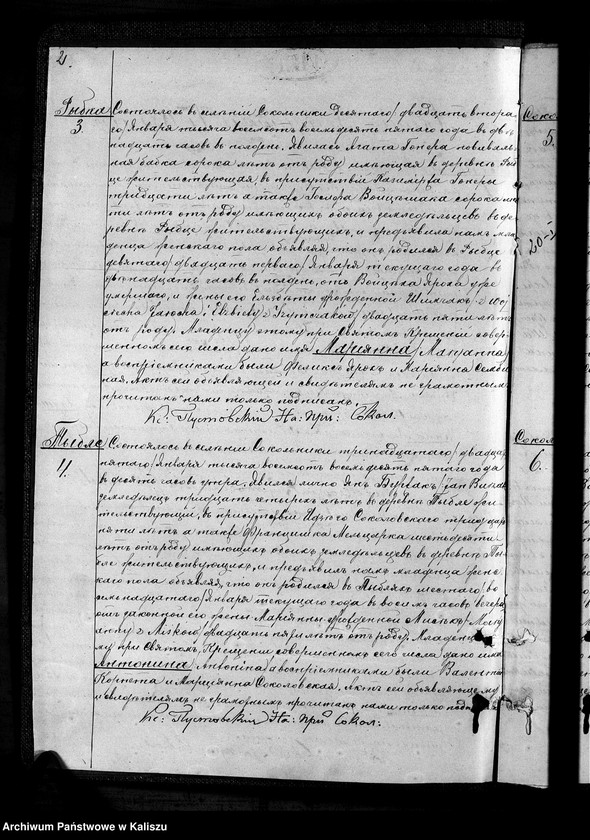 2.
Рыбка
3.
Состоялось в селении Сокольники десятаго/двадцать втора
го/Января тысяча восемсот восемьдесят пятаго года в две
надцать часов в полдень. Явилась Агата Гонера повиваль
ная бабка сорока лет от роду имеющая в деревне
жительствующая, в присутствии Казимержа Гонеры
тридцати лет а также Іосифа сорока
ти лет от роду имеющих обоих земледельцев в де
ревне Рыбце жительствующих, и предъявила нам мла
денца женскаго пола объявляя, что он родился в Рыбце
девятаго/двадцать перваго/Января текущаго года в
двенадцать часов в полдень, от Войцеха Ярока уже
умершаго, и жены его Елжбеты урожденной
двадцать пяти лет
от роду. Младенцу этому при Святом Крещении совер
шенном сего числа дано имя Марианна/Maryanna/
а восприемниками были Феликс Ярок и Марианна
Акт сей объявляющей и свидетелям не грамотным
прочитан нами только подписан.
Кс: Пустовский На: При: Сокол.
Тыбле
4.
Состоялось в селении Сокольники тринадцатаго/двадцать
пятаго/Января тысяча восемсот восемьдесят пятаго года
в десять часов утра. Явился лично Ян
земледелец тридцать четырех лет в деревне Тыбле жи
тельствующий, в присутствии Соколовскаго тридцать
пяти лет а также Францишка Мельцарка шестьдесяти
лет от роду имеющих обоих земледельцев в деревне Ты
бле жительствующих, и предъявил нам младенца женс
каго пола объявляя, что он родился в Тыблях шестаго/во
семнадцатаго/Января текущаго года в восемь часов вечера
от законной его жены Марианны урожденной
двадцать пяти лет от роду. Младенцу
му при Святом Крещении совершенном сего числа дано имя
Антонина/Antonina а восприемниками были Валентий
и Марцианна Соколовская. Акт сей объявляющему
и свидетелям не грамотным прочитан нами только
Кс: Пустовский На: При: Сокол:
5.
20-I
Сокол
6.
Archiwum Państwowe w Kaliszu